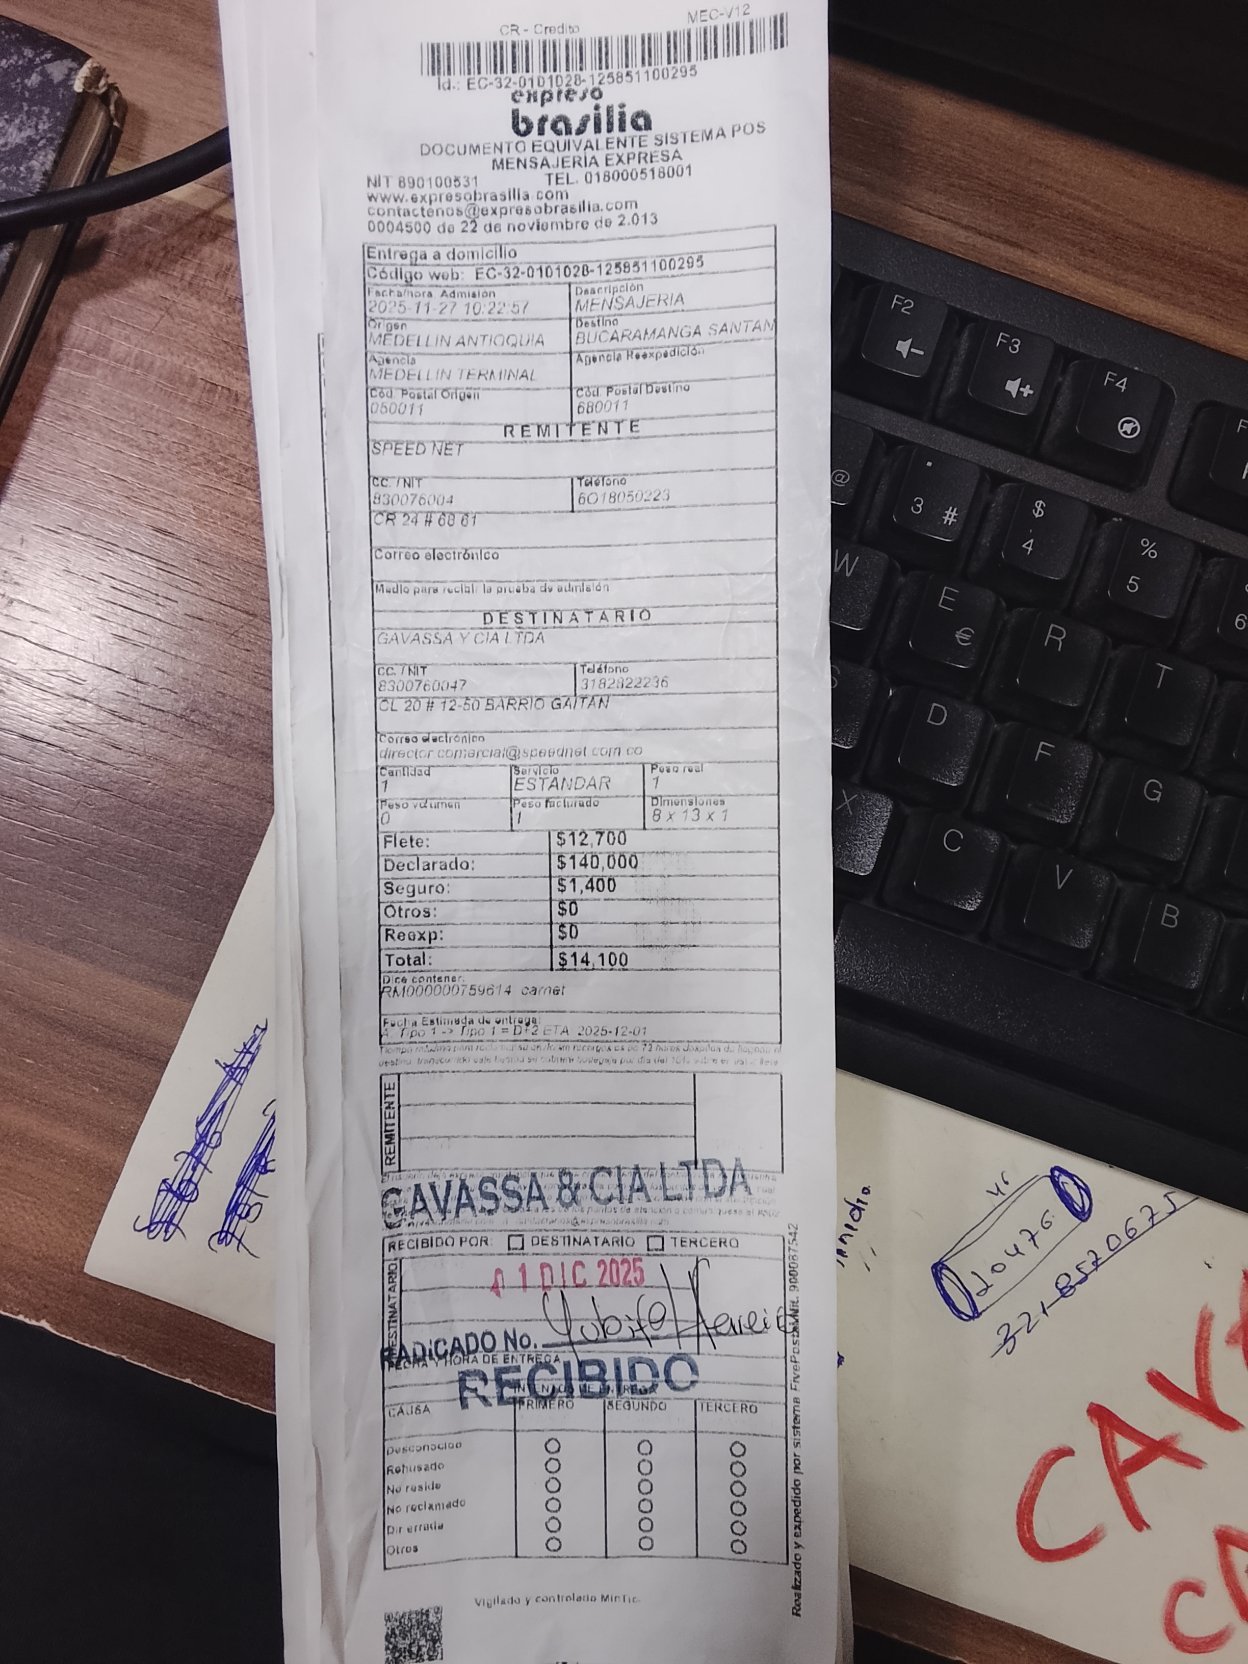 CR - Credito
MEC-V12
Id.: EC-32-0101028-125851100295
expreso
brasilia
DOCUMENTO EQUIVALENTE SISTEMA POS
MENSAJERIA EXPRESA
NIT 890100531 TEL. 018000518001
www.expresobrasilia.com
contactenos@expresobrasilia.com
0004500 de 22 de noviembre de 2.013
Entrega a domicilio
Código web: EC-32-0101028-125851100295
Fecha/hora Admisión Descripción
2025-11-27 10:22:57 MENSAJERIA
Origen Destino
MEDELLIN ANTIOQUIA BUCARAMANGA SANTAN
Agencia Agencia Reexpedición
MEDELLIN TERMINAL
Cód. Postal Origen Cód. Postal Destino
050011 680011
REMITENTE
SPEED NET
CC. / NIT Teléfono
830076004 6018050223
CR 24 # 68 61
Correo electrónico
Medio para recibir la prueba de admisión
DESTINATARIO
GAVASSA Y CIA LTDA
CC. / NIT Teléfono
8300760047 3182822236
CL 20 # 12-50 BARRIO GAITAN
Correo electrónico
director.comercial@speednet.com.co
Cantidad Servicio Peso real
1 ESTANDAR 1
Peso volumen Peso facturado Dimensiones
0 1 8 x 13 x 1
Flete: $12,700
Declarado: $140,000
Seguro: $1,400
Otros: $0
Reexp: $0
Total: $14,100
Dice contener:
RM000000759614 carnet
Fecha Estimada de entrega:
A: Tipo 1 -> Tipo 1 = D+2 ETA: 2025-12-01
REMITENTE
GAVASSA & CIA LTDA
RECIBIDO POR: DESTINATARIO TERCERO
DESTINATARIO
01 DIC 2025
RADICADO No.
FECHA Y HORA DE ENTREGA
RECIBIDO
INTENTO DE ENTREGA
CAUSA PRIMERO SEGUNDO TERCERO
Desconocido
Rehusado
No reside
No reclamado
Dir errada
Otros
Realizado y expedido por sistema FivePostal Nit. 900087542
Vigilado y controlado MinTic.
F2
F3
F4
@
3 #
$ 4
% 5
6
W
E €
R
T
S
D
F
G
X
C
V
B
20476
321 8570675